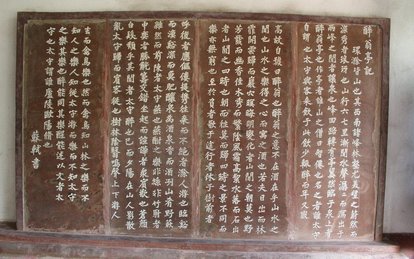 醉翁亭記
環滁皆山也其西南諸峰林壑尤美望之蔚然而
深秀者琅琊也山行六七里漸聞水聲潺潺而瀉出于
兩峰之間者釀泉也峰回路轉有亭翼然臨于泉上者
醉翁亭也作亭者誰山之僧智僊也名之者誰太守
自謂也太守與客來飲于此飲少輒醉而年又最
高故自號曰醉翁也醉翁之意不在酒在乎山水之
間也山水之樂得之心而寓之酒也若夫日出而林
霏開雲歸而巖穴暝晦明變化者山間之朝暮也野
芳發而幽香佳木秀而繁陰風霜高潔水落而石出
者山間之四時也朝而往暮而歸四時之景不同而
樂亦無窮也至於負者歌于塗行者休于樹前者
呼後者應傴僂提攜往來而不絕者滁人遊也臨谿
而漁谿深而魚肥釀泉為酒泉香而酒洌山肴野蔌
雜然而前陳者太守宴也宴酣之樂非絲非竹射者
中奕者勝觥籌交錯起坐而諠譁者衆賓懽也蒼顏
白髮頹乎其間者太守醉也已而夕陽在山人影散
亂太守歸而賓客從也樹林陰翳鳴聲上下遊人
去而禽鳥樂也然而禽鳥知山林之樂而不
知人之樂人知從太守遊而樂而不知太守
之樂其樂也醉能同其樂醒能述以文者太
守也太守謂誰廬陵歐陽修也
蘇軾書